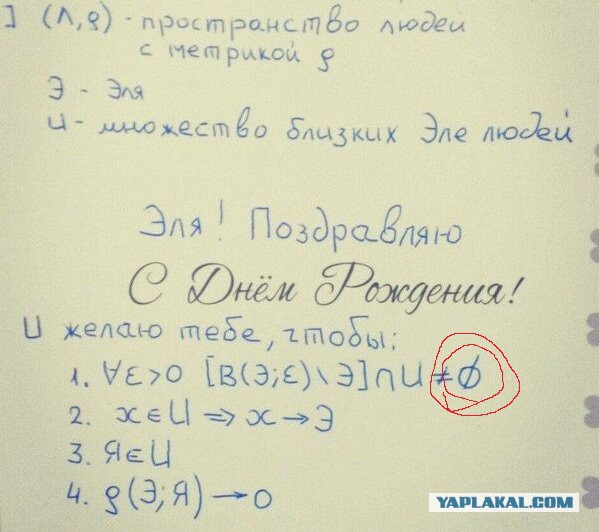 ] (Л,ρ) - пространство людей
с метрикой ρ
Э - Эля
U - множество близких Эле людей
Эля! Поздравляю
С Днём Рождения!
И желаю тебе, чтобы:
1. ∀ε>0 [B(Э;ε)\Э]∩U≠∅
2. x∈U ⇒ x→Э
3. Я∈U
4. ρ(Э;Я)→0
YAPLAKAL.COM